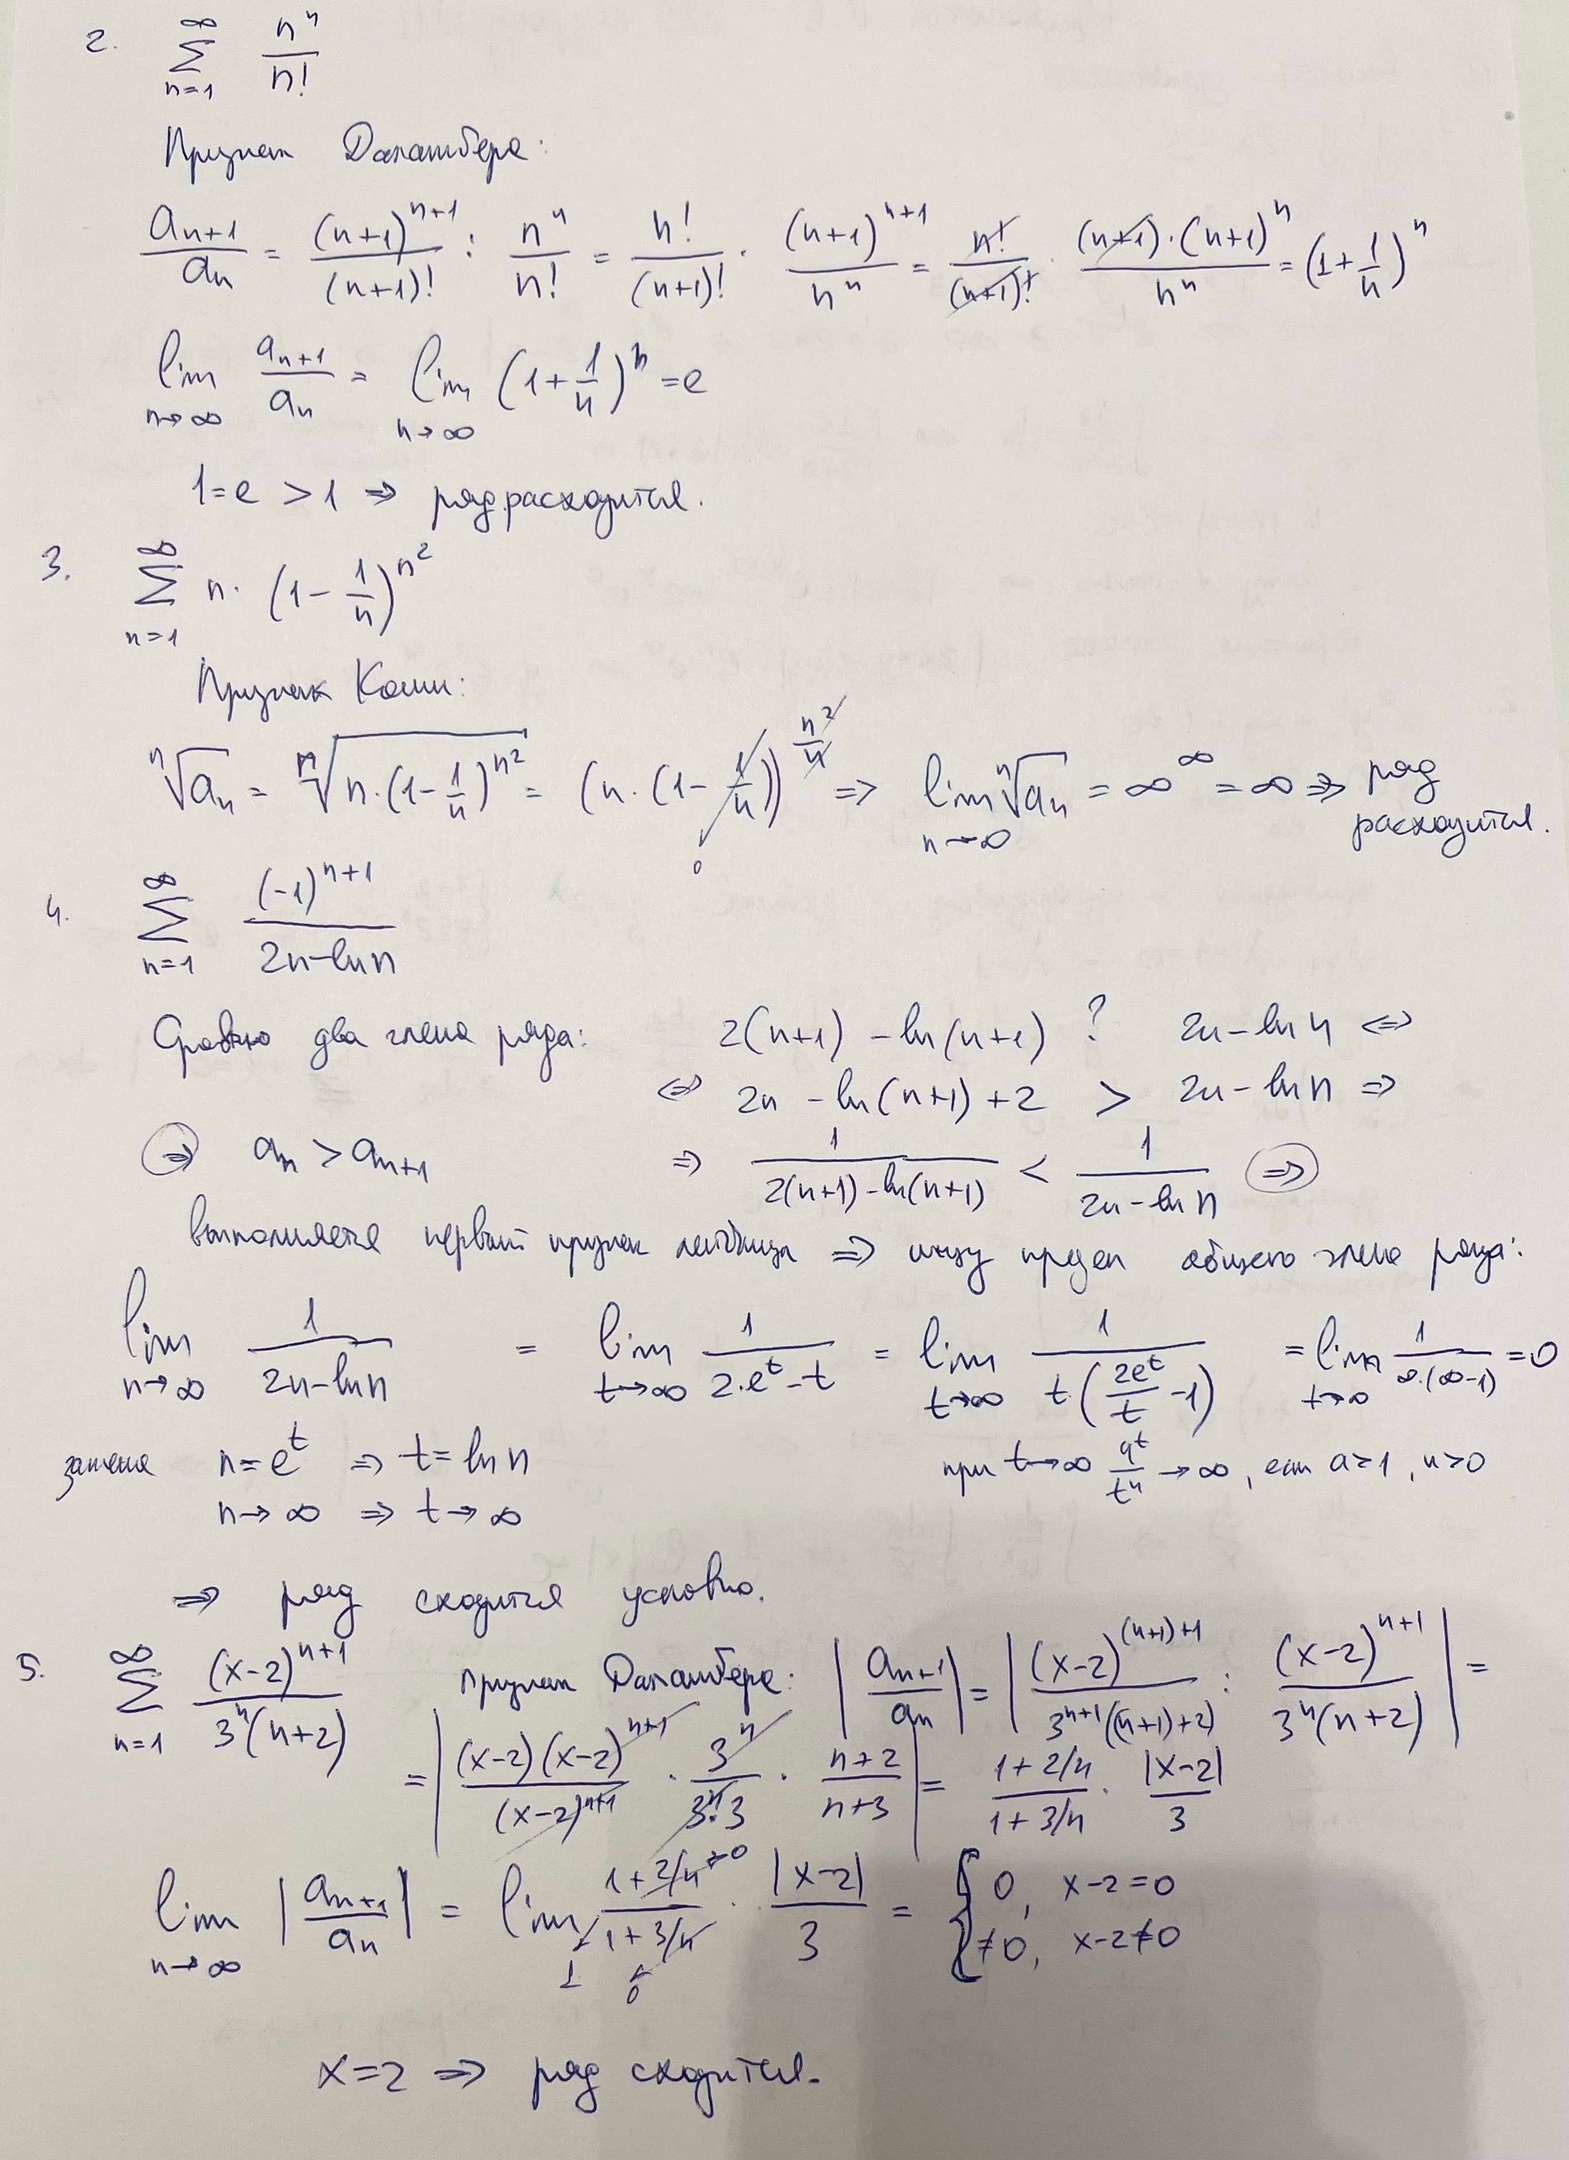 2. ∞ ∑ n=1 n^n / n!
Признак Даламбера:
a_{n+1}/a_n = (n+1)^{n+1}/(n+1)! : n^n/n! = n!/(n+1)! · (n+1)^{n+1}/n^n = n!/(n+1)! · (n+1)·(n+1)^n/n^n = (1+1/n)^n
lim n→∞ a_{n+1}/a_n = lim n→∞ (1+1/n)^n = e
l=e > 1 ⇒ ряд расходится.
3. ∞ ∑ n=1 n·(1-1/n)^{n^2}
Признак Коши:
ⁿ√a_n = ⁿ√(n·(1-1/n)^{n^2}) = (n·(1-1/n))^{n^2/n} ⇒ lim n→∞ ⁿ√a_n = ∞^∞ = ∞ ⇒ ряд расходится.
0
4. ∞ ∑ n=1 (-1)^{n+1} / (2n-ln n)
Сравню два члена ряда: 2(n+1) - ln(n+1) ? 2n - ln n ⇔
⇔ 2n - ln(n+1) + 2 > 2n - ln n ⇒
⇒ a_n > a_{n+1} ⇒ 1/(2(n+1)-ln(n+1)) < 1/(2n-ln n) ⇒
выполняется первый признак лейбница ⇒ ищу предел общего члена ряда:
lim n→∞ 1/(2n-ln n) = lim t→∞ 1/(2·e^t-t) = lim t→∞ 1/(t·(2e^t/t-1)) = lim t→∞ 1/(∞·(∞-1)) = 0
замена n=e^t ⇒ t=ln n при t→∞ a^t/t^n → ∞, если a>1, n>0
n→∞ ⇒ t→∞
⇒ ряд сходится условно.
5. ∞ ∑ n=1 (x-2)^{n+1} / 3^n(n+2) признак Даламбера: |a_{n+1}/a_n| = |(x-2)^{(n+1)+1}/3^{n+1}((n+1)+2) : (x-2)^{n+1}/3^n(n+2)| =
= |(x-2)(x-2)^{n+1}/(x-2)^{n+1} · 3^n/3^n·3 · (n+2)/(n+3)| = (1+2/n)/(1+3/n) · |x-2|/3
lim n→∞ |a_{n+1}/a_n| = lim (1+2/n→0)/(1+3/n) · |x-2|/3 = { 0, x-2=0
≠0, x-2≠0
1 0
x=2 ⇒ ряд сходится.